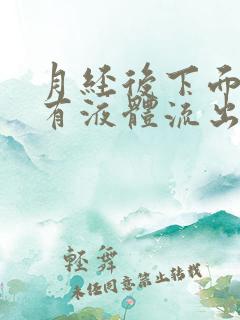 月經後下而
有液體流出
輕舞
未經同意禁止轉載